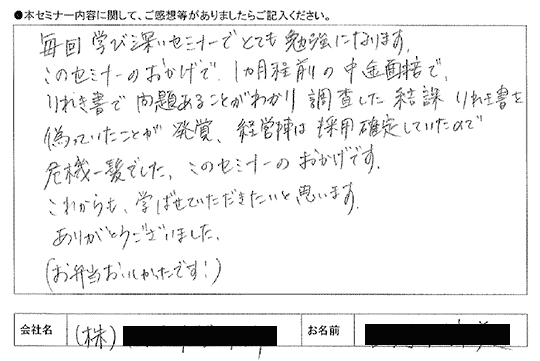 ●本セミナー内容に関して、ご感想等がありましたらご記入ください。
毎回 学び深いセミナーでとても勉強になります。
このセミナーのおかげで、1カ月程前の中途面接で、
りれき書で問題あることがわかり 調査した結課 りれき書を
偽っていたことが発覚、経営陣は採用確定していたので
危機一髪でした。このセミナーのおかげです。
これからも、学ばせていただきたいと思います。
ありがとうございました。
(お弁当おいしかったです!)
会社名 (株) お名前